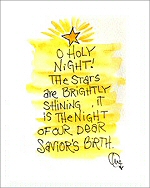 O HOLY
NIGHT!
THE STARS
are BRIGHTLY
SHINING, IT
IS THE NIGHT
OF OUR DEAR
SAVIOR'S BIRTH.